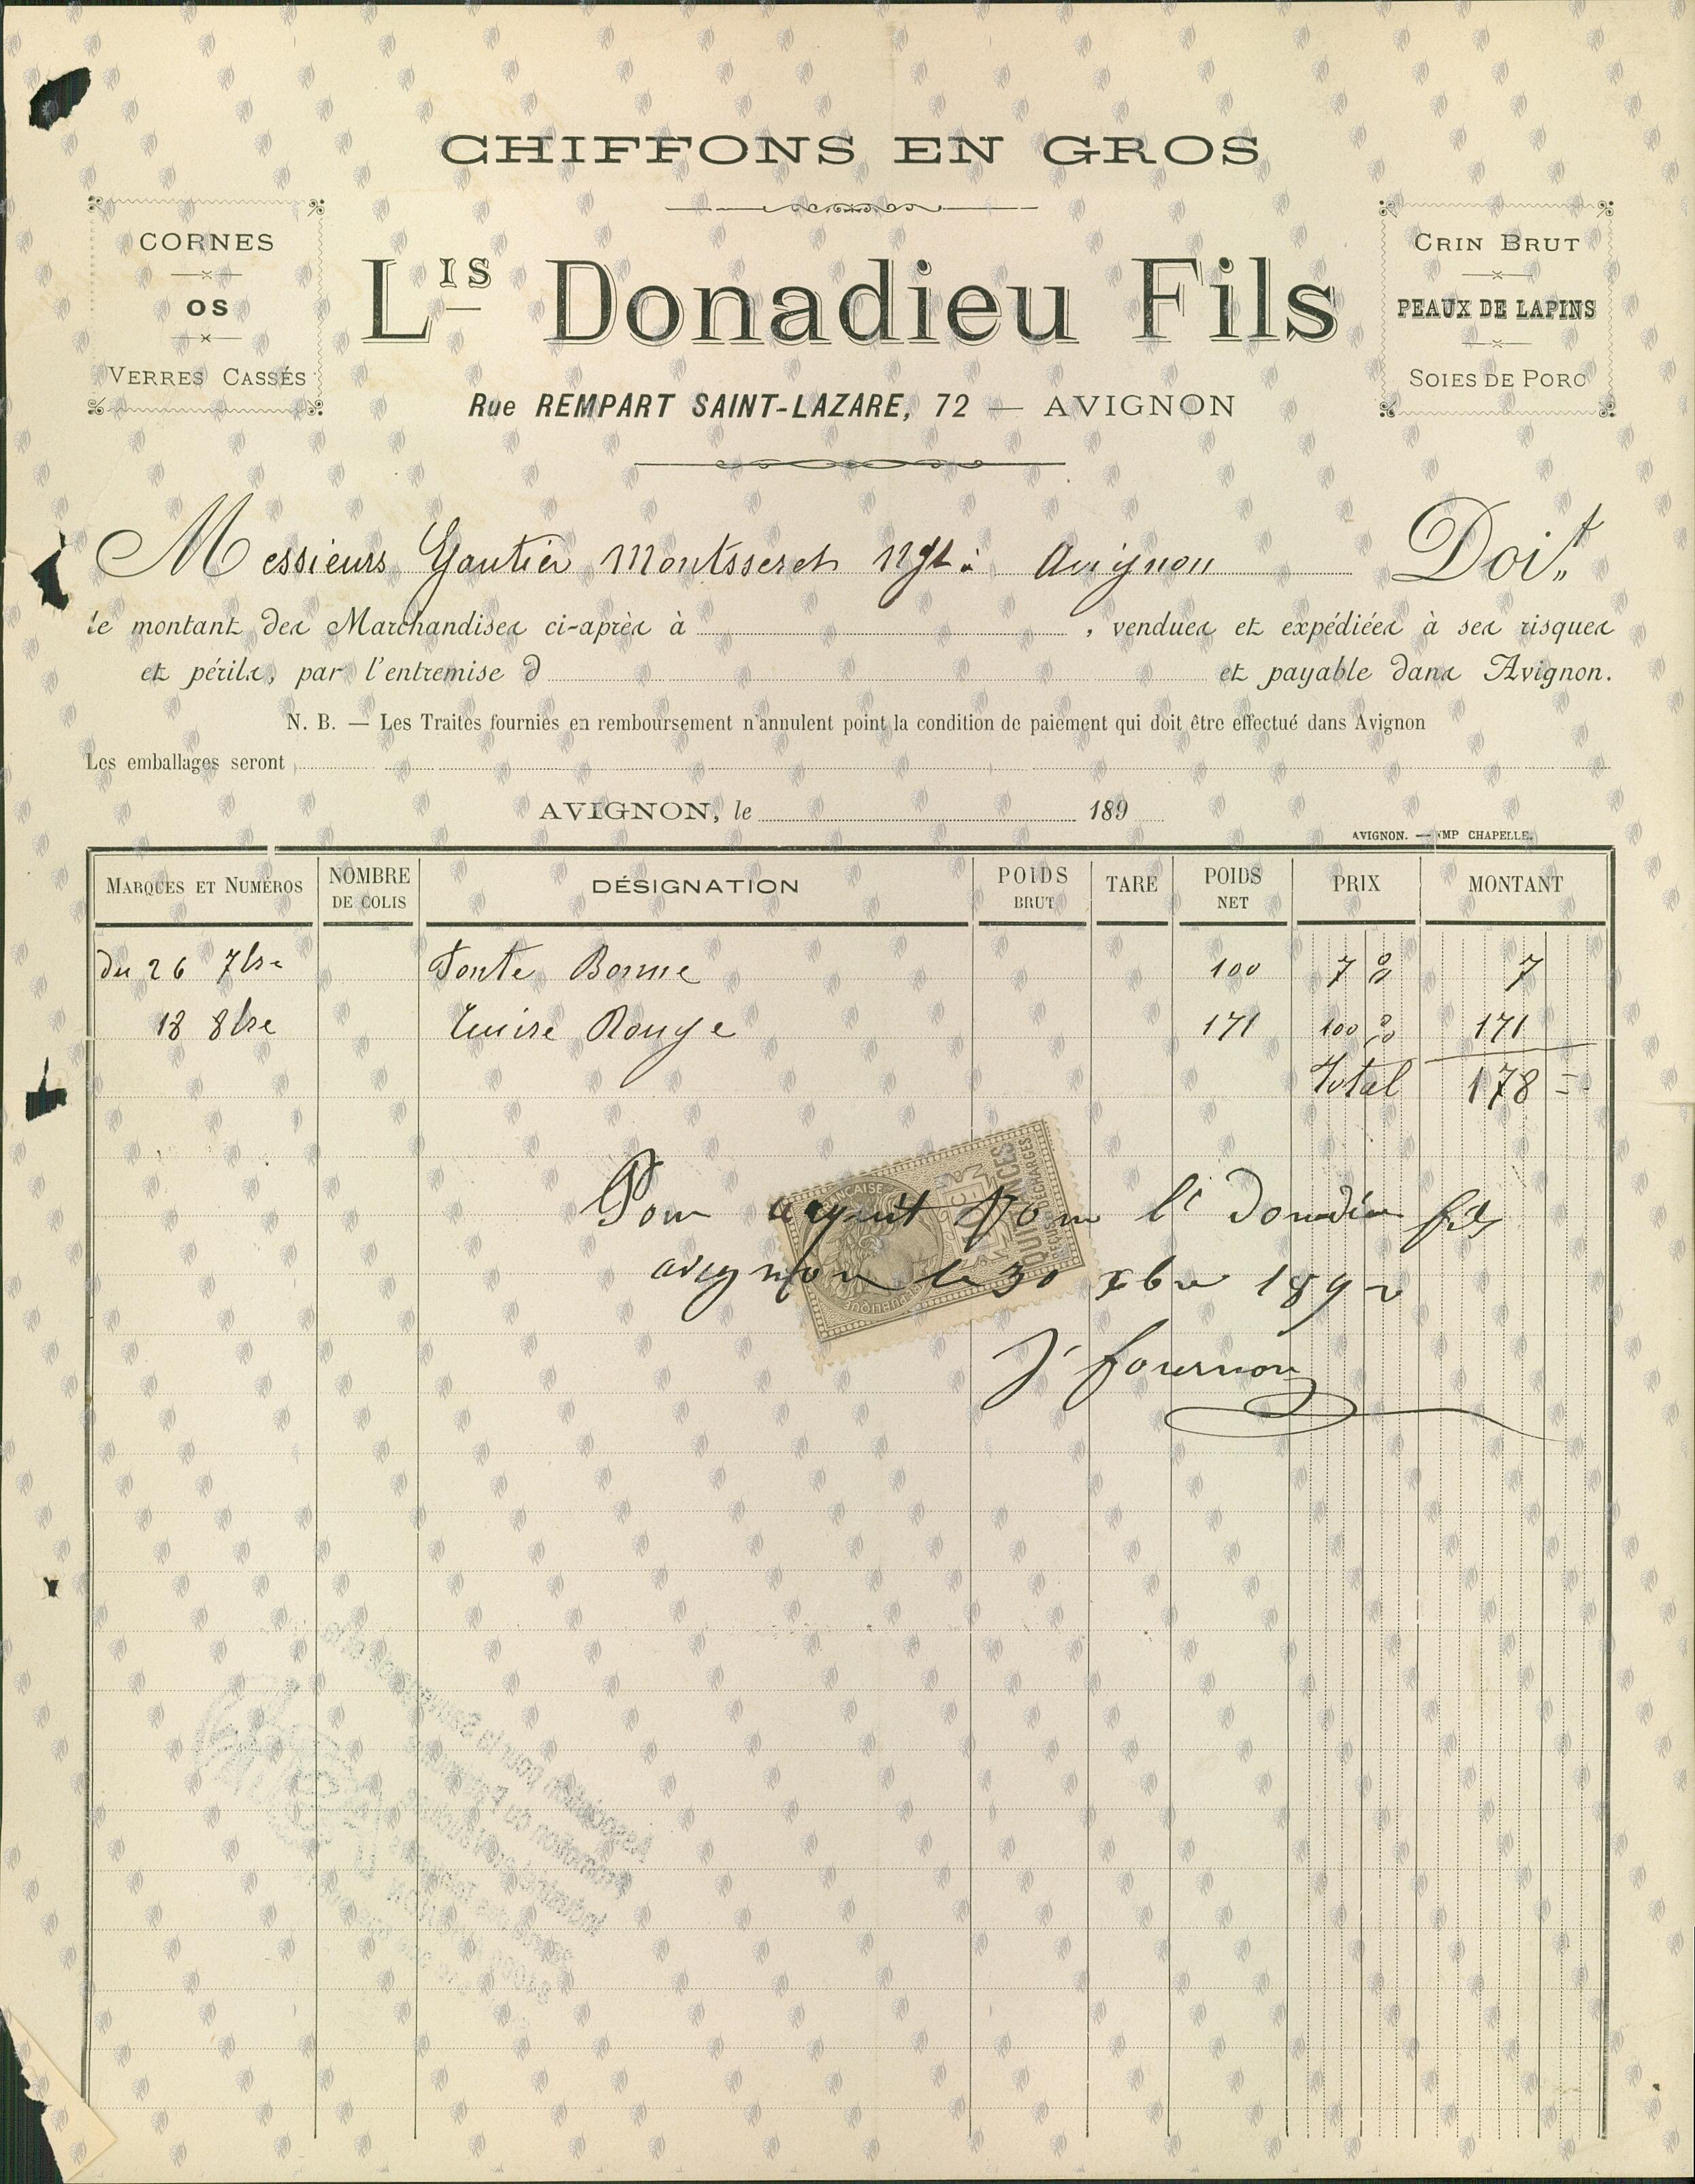 CHIFFONS EN GROS
CORNES
OS
VERRES CASSÉS
LIS Donadieu Fils
Rue REMPART SAINT-LAZARE, 72 — AVIGNON
CRIN BRUT
PEAUX DE LAPINS
SOIES DE PORC
Messieurs Gautier Montsseret Ngt: Avignon Doit
le montant des Marchandises ci-après à , vendues et expédiées à ses risques
et périls, par l'entremise d et payable dans Avignon.
N. B. — Les Traites fournies en remboursement n'annulent point la condition de paiement qui doit être effectué dans Avignon
Les emballages seront
AVIGNON, le 189
AVIGNON. — IMP CHAPELLE.
MARQUES ET NUMÉROS NOMBRE DE COLIS DÉSIGNATION POIDS BRUT TARE POIDS NET PRIX MONTANT
Du 26 7bre Fonte Bonne 100 7 % 7
18 8bre Cuivre Rouge 171 100 % 171
Total 178
Pour argent Pour Ls Donadieu fils
avignon le 30 xbre 1892
J fournon
FRANÇAISE
RÉPUBLIQUE
10 CEN
QUITTANCES
REÇUS ET DÉCHARGES
Association pour la Sauvegarde et la
Promotion du Patrimoine
Industriel en Vaucluse
84000 AVIGNON